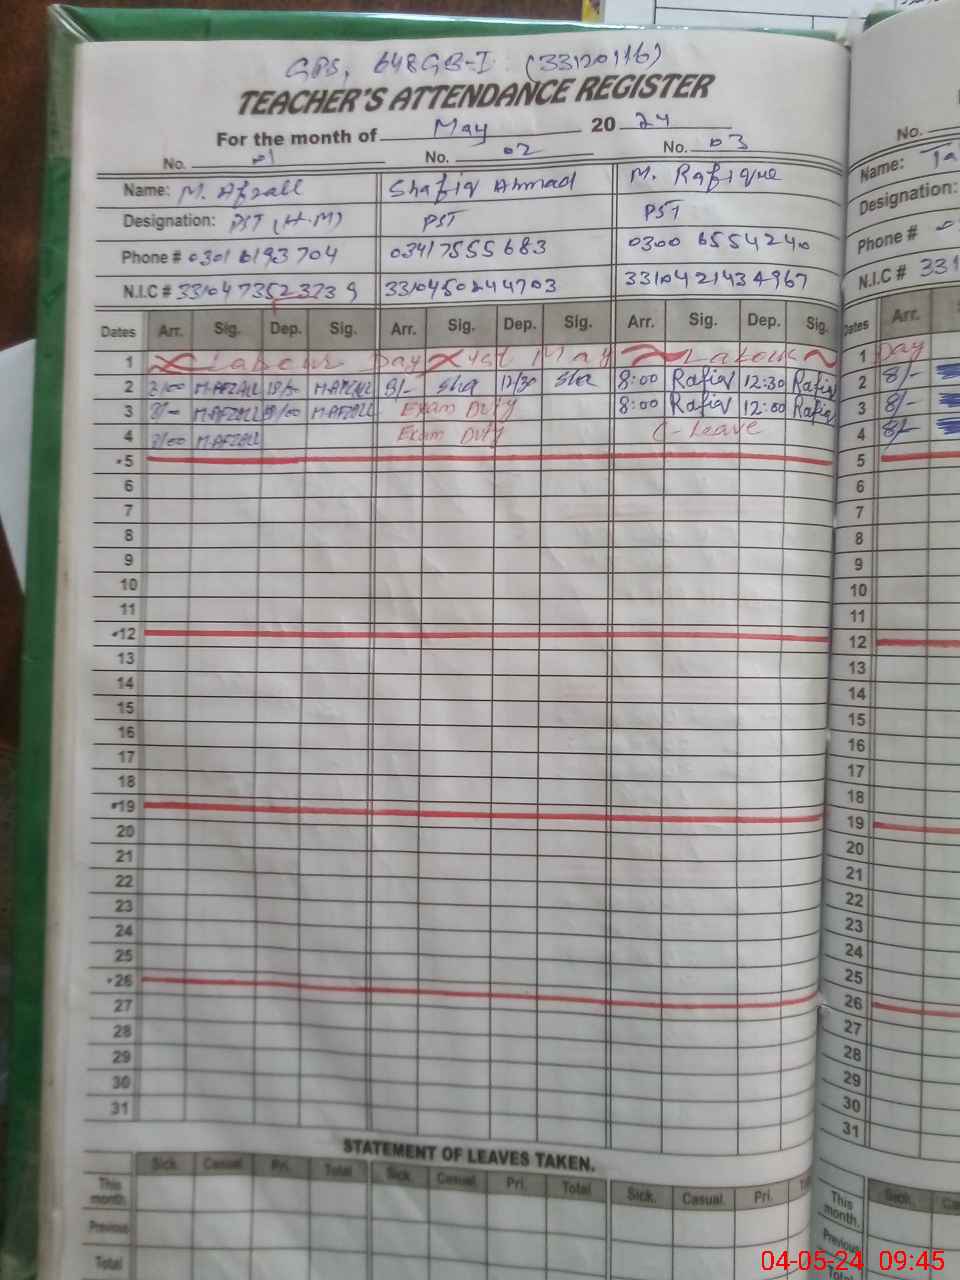 GPS, 648GB-I (33120116)
TEACHER'S ATTENDANCE REGISTER
For the month of May 2024
No. 01 No. 02 No. 03 No.
Name: M. Afzall Shafiq Ahmad M. Rafique Name:
Designation: PST (H.M) PST PST Designation:
Phone # 0301 6193704 03417555683 0300 6554240 Phone #
N.I.C # 3310450244703 3310421434967 N.I.C # 331
Dates Arr. Sig. Dep. Sig. Arr. Sig. Dep. Sig. Arr. Sig. Dep. Sig. Dates Arr.
1 Labour Day 1st May Labour 1 Day
2 8/00 M.AFZALL M.AFZALL 8/- Sha 12/30 Sha 8:00 Rafiq 12:30 Rafiq 2 8/-
3 8/- M.AFZALL M.AFZALL Exam Duty 8:00 Rafiq 12:00 Rafiq 3 8/-
4 8/00 M.AFZALL Exam Duty C-Leave 4 8/-
5 5
6 6
7 7
8 8
9 9
10 10
11 11
12 12
13 13
14 14
15 15
16 16
17 17
18 18
19 19
20 20
21 21
22 22
23 23
24 24
25 25
26 26
27 27
28 28
29 29
30 30
31 31
STATEMENT OF LEAVES TAKEN.
Sick. Casual. Pri. Total Sick. Casual. Pri. Total Sick. Casual. Pri. Sick.
This month. This month.
Previous Previous
Total Total
04-05-24 09:45